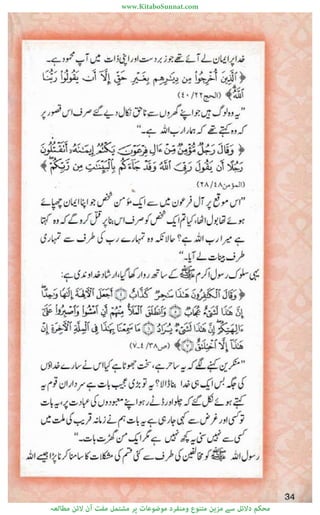 www.KitaboSunnat.com
خدا پر ایمان لے آئے تھے جو زبردست اور اپنی ذات میں آپ محمود ہے۔
﴿ الَّذِينَ أُخْرِجُوا مِن دِيَٰرِهِم بِغَيْرِ حَقٍّ إِلَّآ أَن يَقُولُوا رَبُّنَا
اللَّهُ ﴾ (الحج ٤٠/٢٢)
"یہ وہ لوگ ہیں جو اپنے گھروں سے ناحق نکال دیے گئے صرف اس قصور پر
کہ وہ کہتے تھے کہ ہمارا رب اللہ ہے۔"
﴿ وَقَالَ رَجُلٌ مُّؤْمِنٌ مِّنْ ءَالِ فِرْعَوْنَ يَكْتُمُ إِيمَٰنَهُۥٓ أَتَقْتُلُونَ
رَجُلًا أَن يَقُولَ رَبِّيَ اللَّهُ وَقَدْ جَآءَكُم بِالْبَيِّنَٰتِ مِن رَّبِّكُمْ ﴾
"اس موقع پر آل فرعون میں سے ایک مومن شخص جو اپنا ایمان چھپائے
ہوئے تھا بول اٹھا، کیا تم ایک شخص کو صرف اس بنا پر قتل کرو گے کہ وہ کہتا
ہے میرا رب اللہ ہے؟ حالانکہ وہ تمہارے رب کی طرف سے تمہاری
طرف بینات لے آیا۔"
یہی سلوک رسول اکرم ﷺ کے ساتھ روا رکھا گیا، ارشاد خداوندی ہے:
﴿ وَقَالَ الْكَٰفِرُونَ هَٰذَا سَٰحِرٌ كَذَّابٌ أَجَعَلَ الْآلِهَةَ إِلَٰهًا وَٰحِدًا
إِنَّ هَٰذَا لَشَيْءٌ عُجَابٌ وَانطَلَقَ الْمَلَأُ مِنْهُمْ أَنِ امْشُوا وَاصْبِرُوا عَلَىٰٓ
ءَالِهَتِكُمْ إِنَّ هَٰذَا لَشَيْءٌ يُرَادُ مَا سَمِعْنَا بِهَٰذَا فِي الْمِلَّةِ الْآخِرَةِ إِنْ
هَٰذَآ إِلَّا اخْتِلَٰقٌ ﴾
"منکرین کہنے لگے کہ یہ ساحر ہے، سخت جھوٹا ہے کیا اس نے سارے خداؤں
کی جگہ بس ایک ہی خدا بنا ڈالا؟ یہ تو بڑی عجیب بات ہے سرداران قوم یہ
کہتے ہوئے نکل گئے کہ چلو اور ڈٹے رہو اپنے معبودوں کی عبادت پر، یہ بات
تو کسی اور غرض سے کہی جارہی ہے یہ بات ہم نے زمانہ قریب کی ملت میں
کسی سے نہیں سنی یہ کچھ نہیں ہے مگر ایک من گھڑت بات۔"
رسول اللہ ﷺ کو مخالفین کی طرف سے کئی قسم کی مشکلات کا سامنا کرنا پڑا جیسے
34
محکم دلائل سے مزین متنوع ومنفرد موضوعات پر مشتمل مفت آن لائن مطالعہ